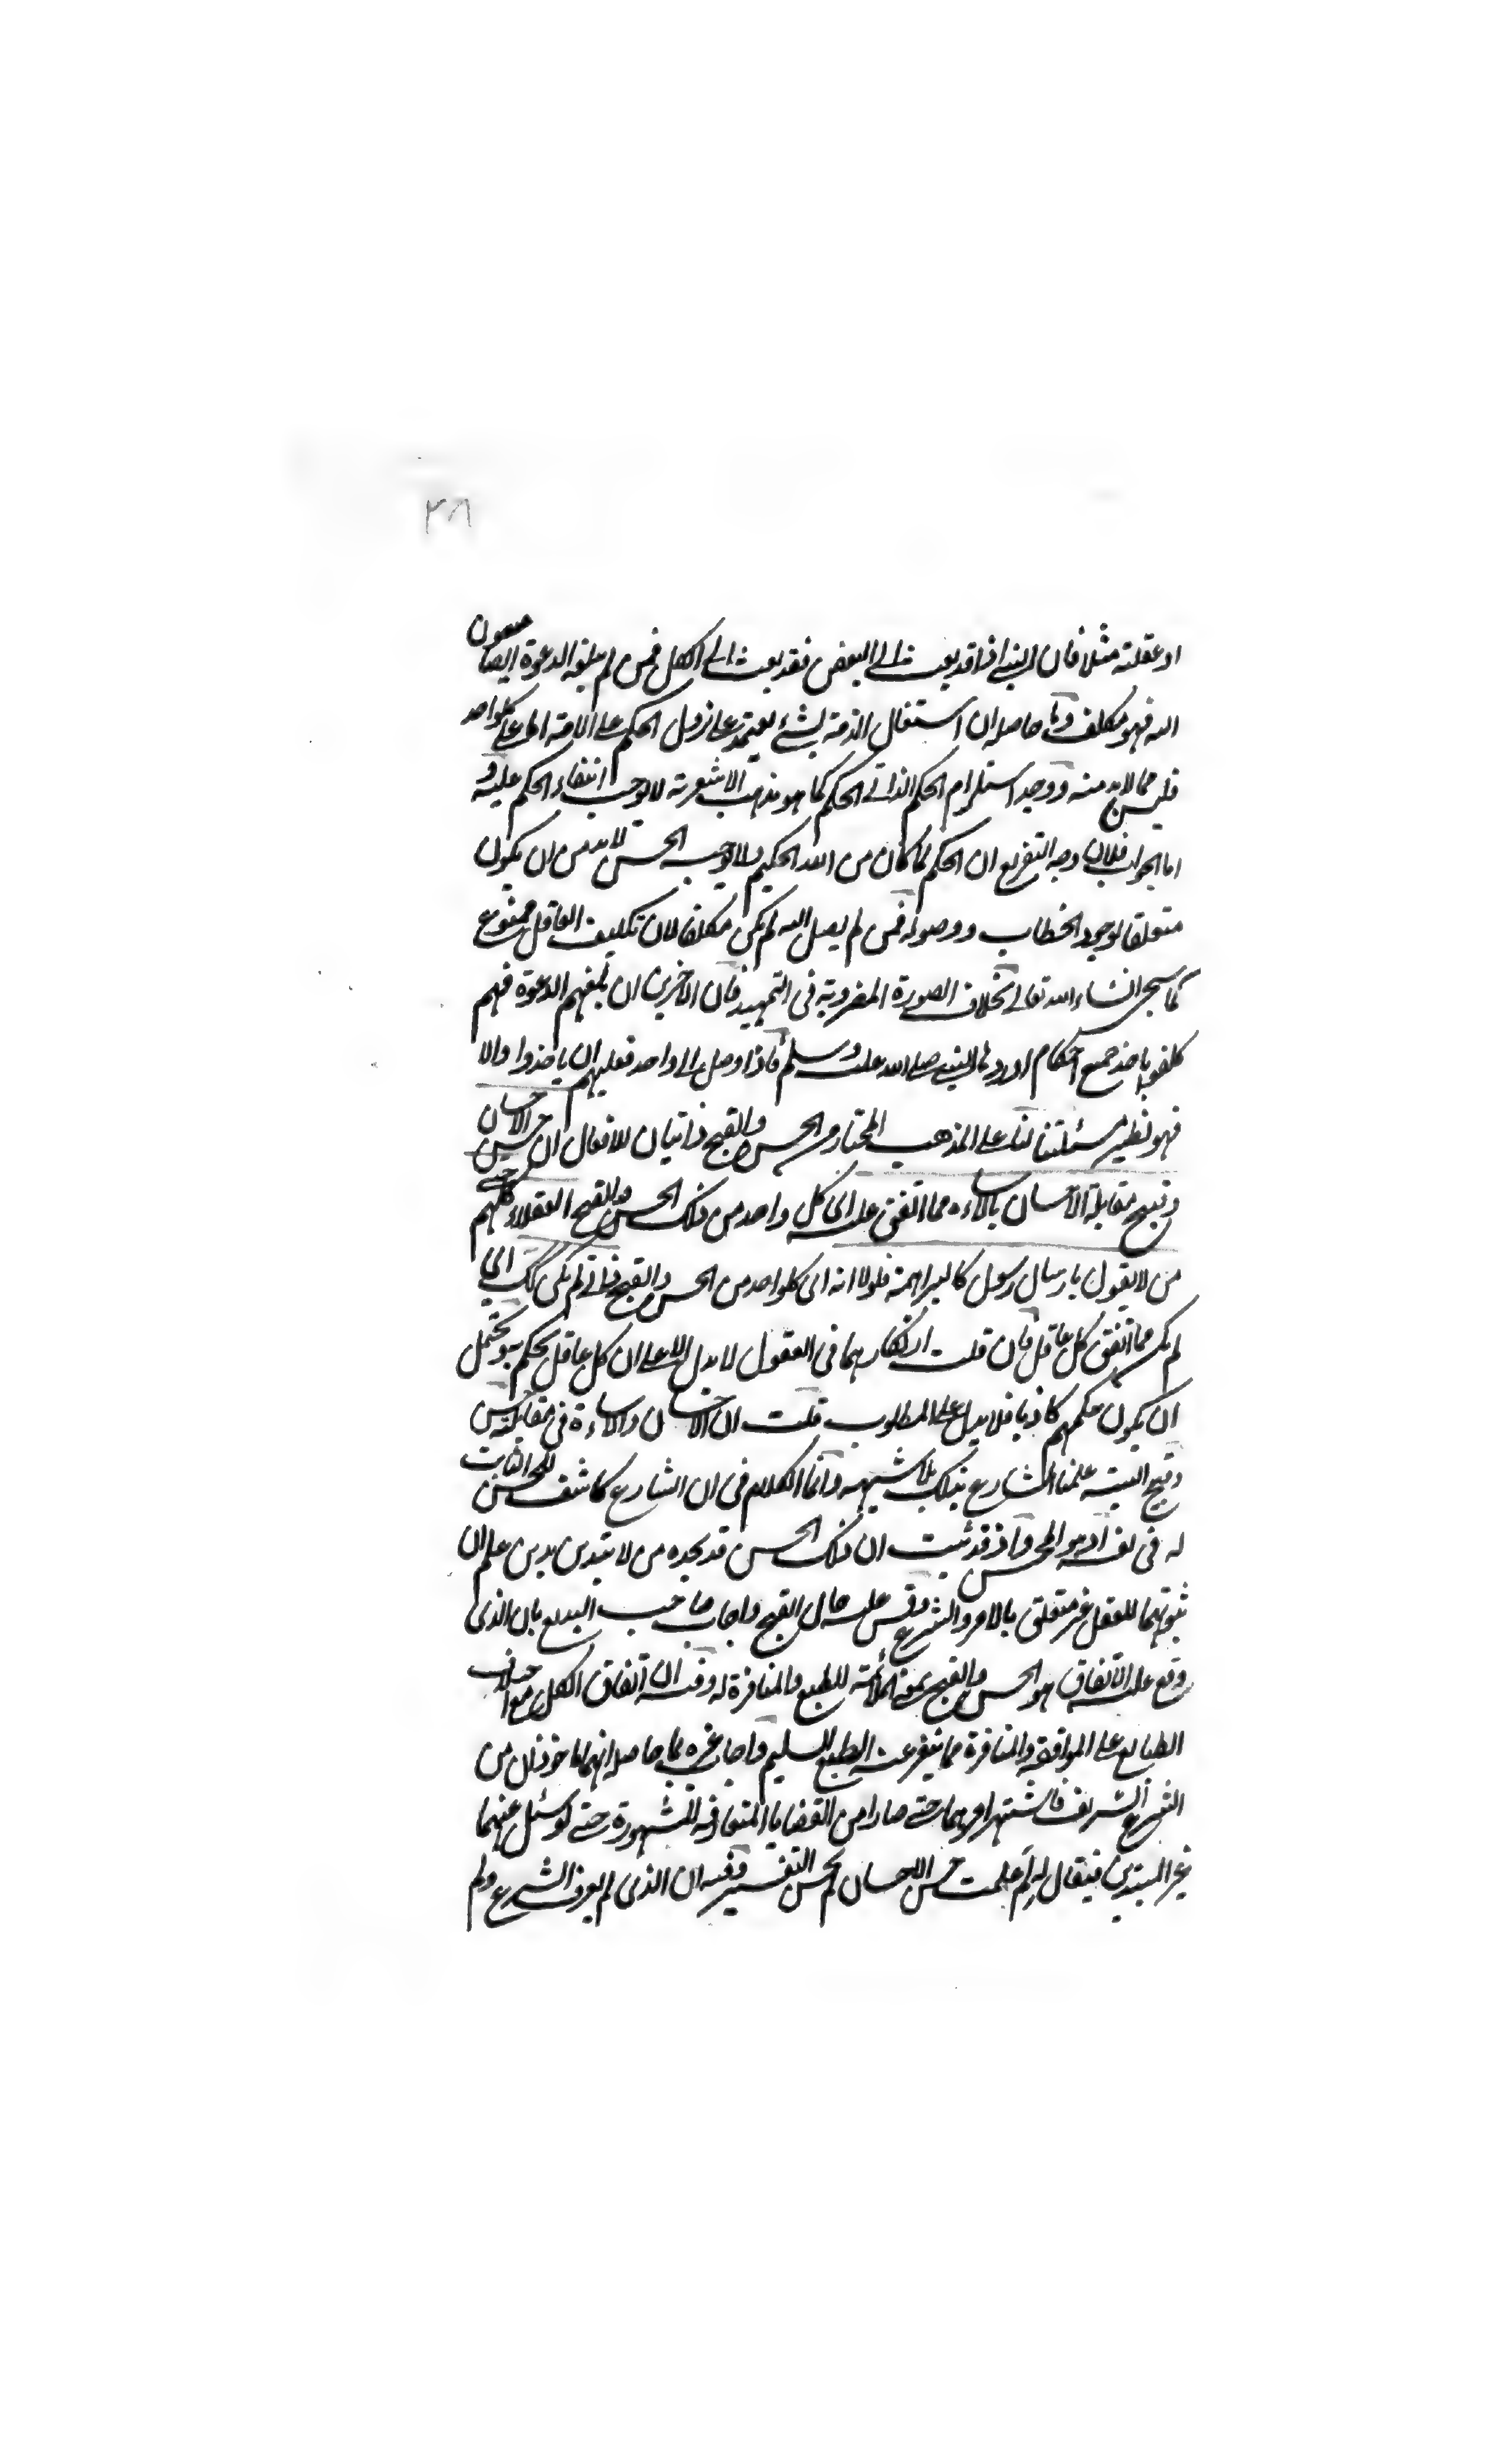 ٢٨
او عقلية مثلا فان النبي اذا قد بعث الى البعض فقد بعث الى الكل فمن لم يبلغه الدعوة ايضا مبعوث
اليه فهو مكلف وما حاصله ان اشتغال الذمة بشيء يعتمد على نزول الحكم على الامة اما على كلواحد
فليس مما لابد منه ووجد استلزام الحكم الذاتي الحكم كما هو مذهب الاشعرية لا يوجب انتفاء الحكم عليه و
اما الجواب فلان وجه التفريع ان الحكم لما كان من الله الحكيم ولا يوجبه الحسن لابد من ان يكون
متعلقا بوجود الخطاب ووصوله فمن لم يصل اليه لم يكن مكلفا لان تكليف الغافل ممنوع
كما سيجئ انشاء الله تعالى بخلاف الصورة المضروبة في التمهيد فان الاخرين ان بلغهم الدعوة فهم
كلفوا باخذ جميع احكام اوردها النبي صلى الله عليه وسلم فاذا وصل الى واحد فعليهم ان ياخذوا والا
فهو نظير مسئلتنا لنا على المذهب المختار من الحسن والقبح ذاتيان للافعال ان حسن الاحسان
وقبح مقابلة الاحسان بالاساءة مما اتفق عليه اى كل واحد من ذلك الحسن والقبح العقلاء كلهم حتى
من لا يقول بارسال رسول كالبراهمة فلولا انه اى كلواحد من الحسن والقبح ذاتي لم يكن كك اى
لم يك مما اتفق كل عاقل فان قلت ارتكازهما في العقول لا يدل الا على ان كل عاقل يحكم به ويحتمل
ان يكون حكمهم كاذبا فلا يدل على المطلوب قلت ان الاحسان والاساءة في مقابلته حسن
وقبيح البتة علمنا الشارع بذلك بلا شبهه وانما الكلام في ان الشارع كاشف للحسن الثابت
له في نفسه او هو المحسن واذ قد ثبت ان ذلك الحسن قد يجده من لا يتدين بدين علم ان
ثبوتهما للعقل غير متعلق بالامر والشرع وقس عليه حال القبح واجاب صاحب البديع بان الذى
وقع عليه الاتفاق هو الحسن والقبح بمعنى الملائمة للطبع والمنافرة له وفيه ان اتفاق الكل مع اختلاف
الطبايع على الموافقة والمنافرة مما يتنفر عنه الطبع السليم واجاب غيره بما حاصله انهما ماخوذان من
الشرع الشريف فاشتهر امرهما حتى صارا من القضايا المتعارفة المشهورة حتى لو سئل عنهما
غير المتدين فيقال له لم علمت حسن الاحسان لم يحسن التفسير وفيه ان الذى لم يعرف الشرع ولم